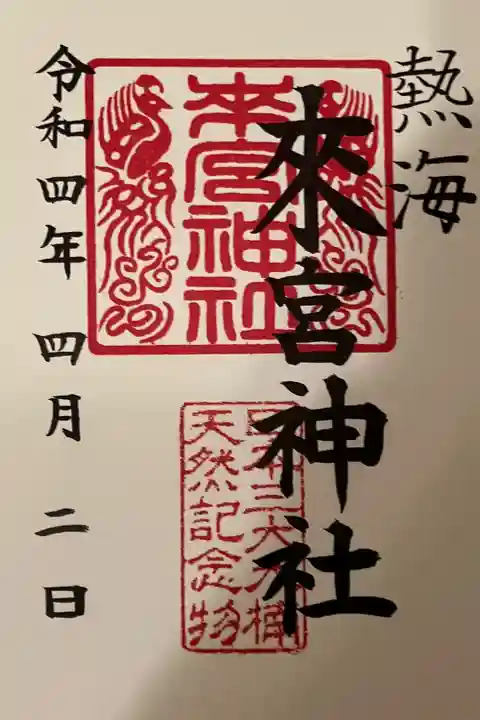 熱海
來宮神社
來宮神社
日本三大大楠
天然記念物
令和四年 四月 二日